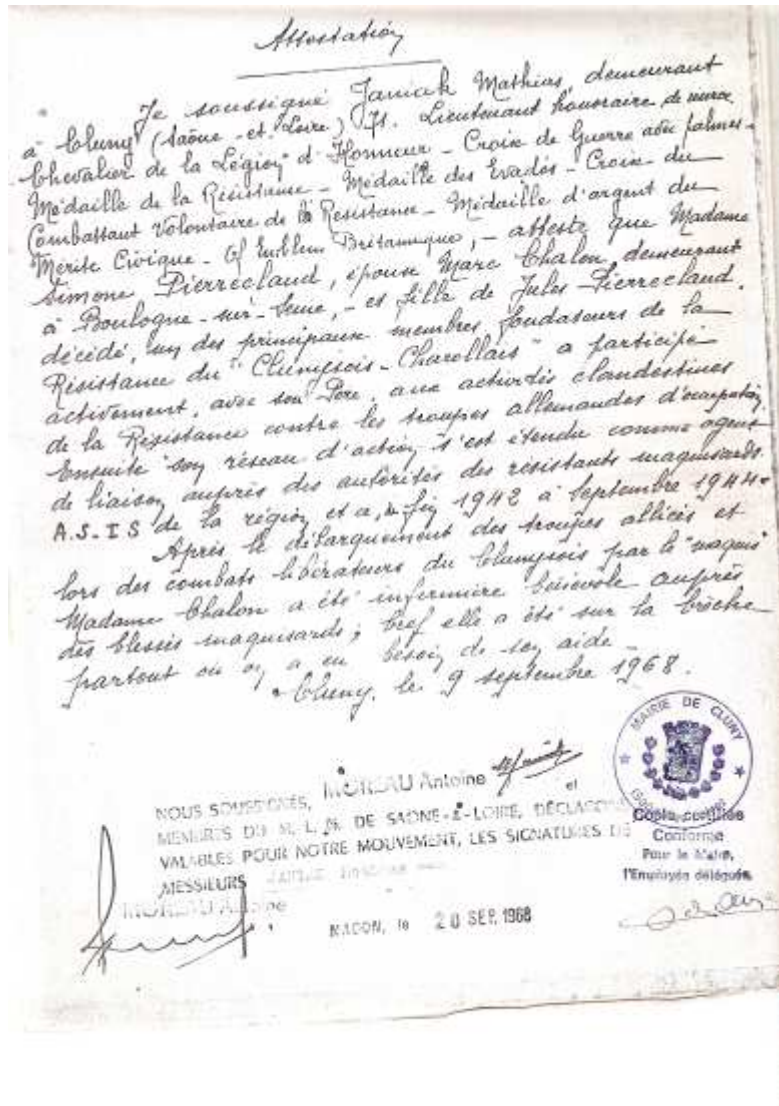 Attestation
Je soussigné Janiak Mathias, demeurant
à Cluny (Saône-et-Loire) 71. Lieutenant honoraire de
Chevalier de la Légion d'Honneur - Croix de Guerre avec palmes -
Médaille de la Résistance - Médaille des Evadés - Croix du
Combattant Volontaire de la Résistance - Médaille d'argent du
Mérite Civique - Britannique, - atteste que Madame
Simone Pierreclaud, épouse Marc Chalon, demeurant
à Boulogne-sur-Seine, - et fille de Jules Pierreclaud,
décédé, un des principaux membres fondateurs de la
Résistance du "Clunysois-Charollais" a participé
activement, avec son Père, aux activités clandestines
de la Résistance contre les troupes allemandes d'occupation.
Ensuite son réseau d'action s'est étendu comme agent
de liaison auprès des autorités des résistants maquisards.
A.S-IS de la région et a, fin 1942 à Septembre 1944.
Après le débarquement des troupes alliées et
lors des combats libérateurs du Clunysois par le "maquis"
Madame Chalon a été infirmière bénévole auprès
des blessés maquisards; bref elle a été sur la brèche
partout où on a eu besoin de son aide -
Cluny, le 9 septembre 1968.
MAIRIE DE CLUNY
Copie certifiée
Conforme
Pour le Maire,
l'Employée déléguée,
NOUS SOUSSIGNÉS, MOREAU Antoine et
MEMBRES DU M.L.N. DE SAONE-&-LOIRE, DÉCLARONS
VALABLES POUR NOTRE MOUVEMENT, LES SIGNATURES DE
MESSIEURS
MOREAU Antoine
MACON, le 20 SEP. 1968